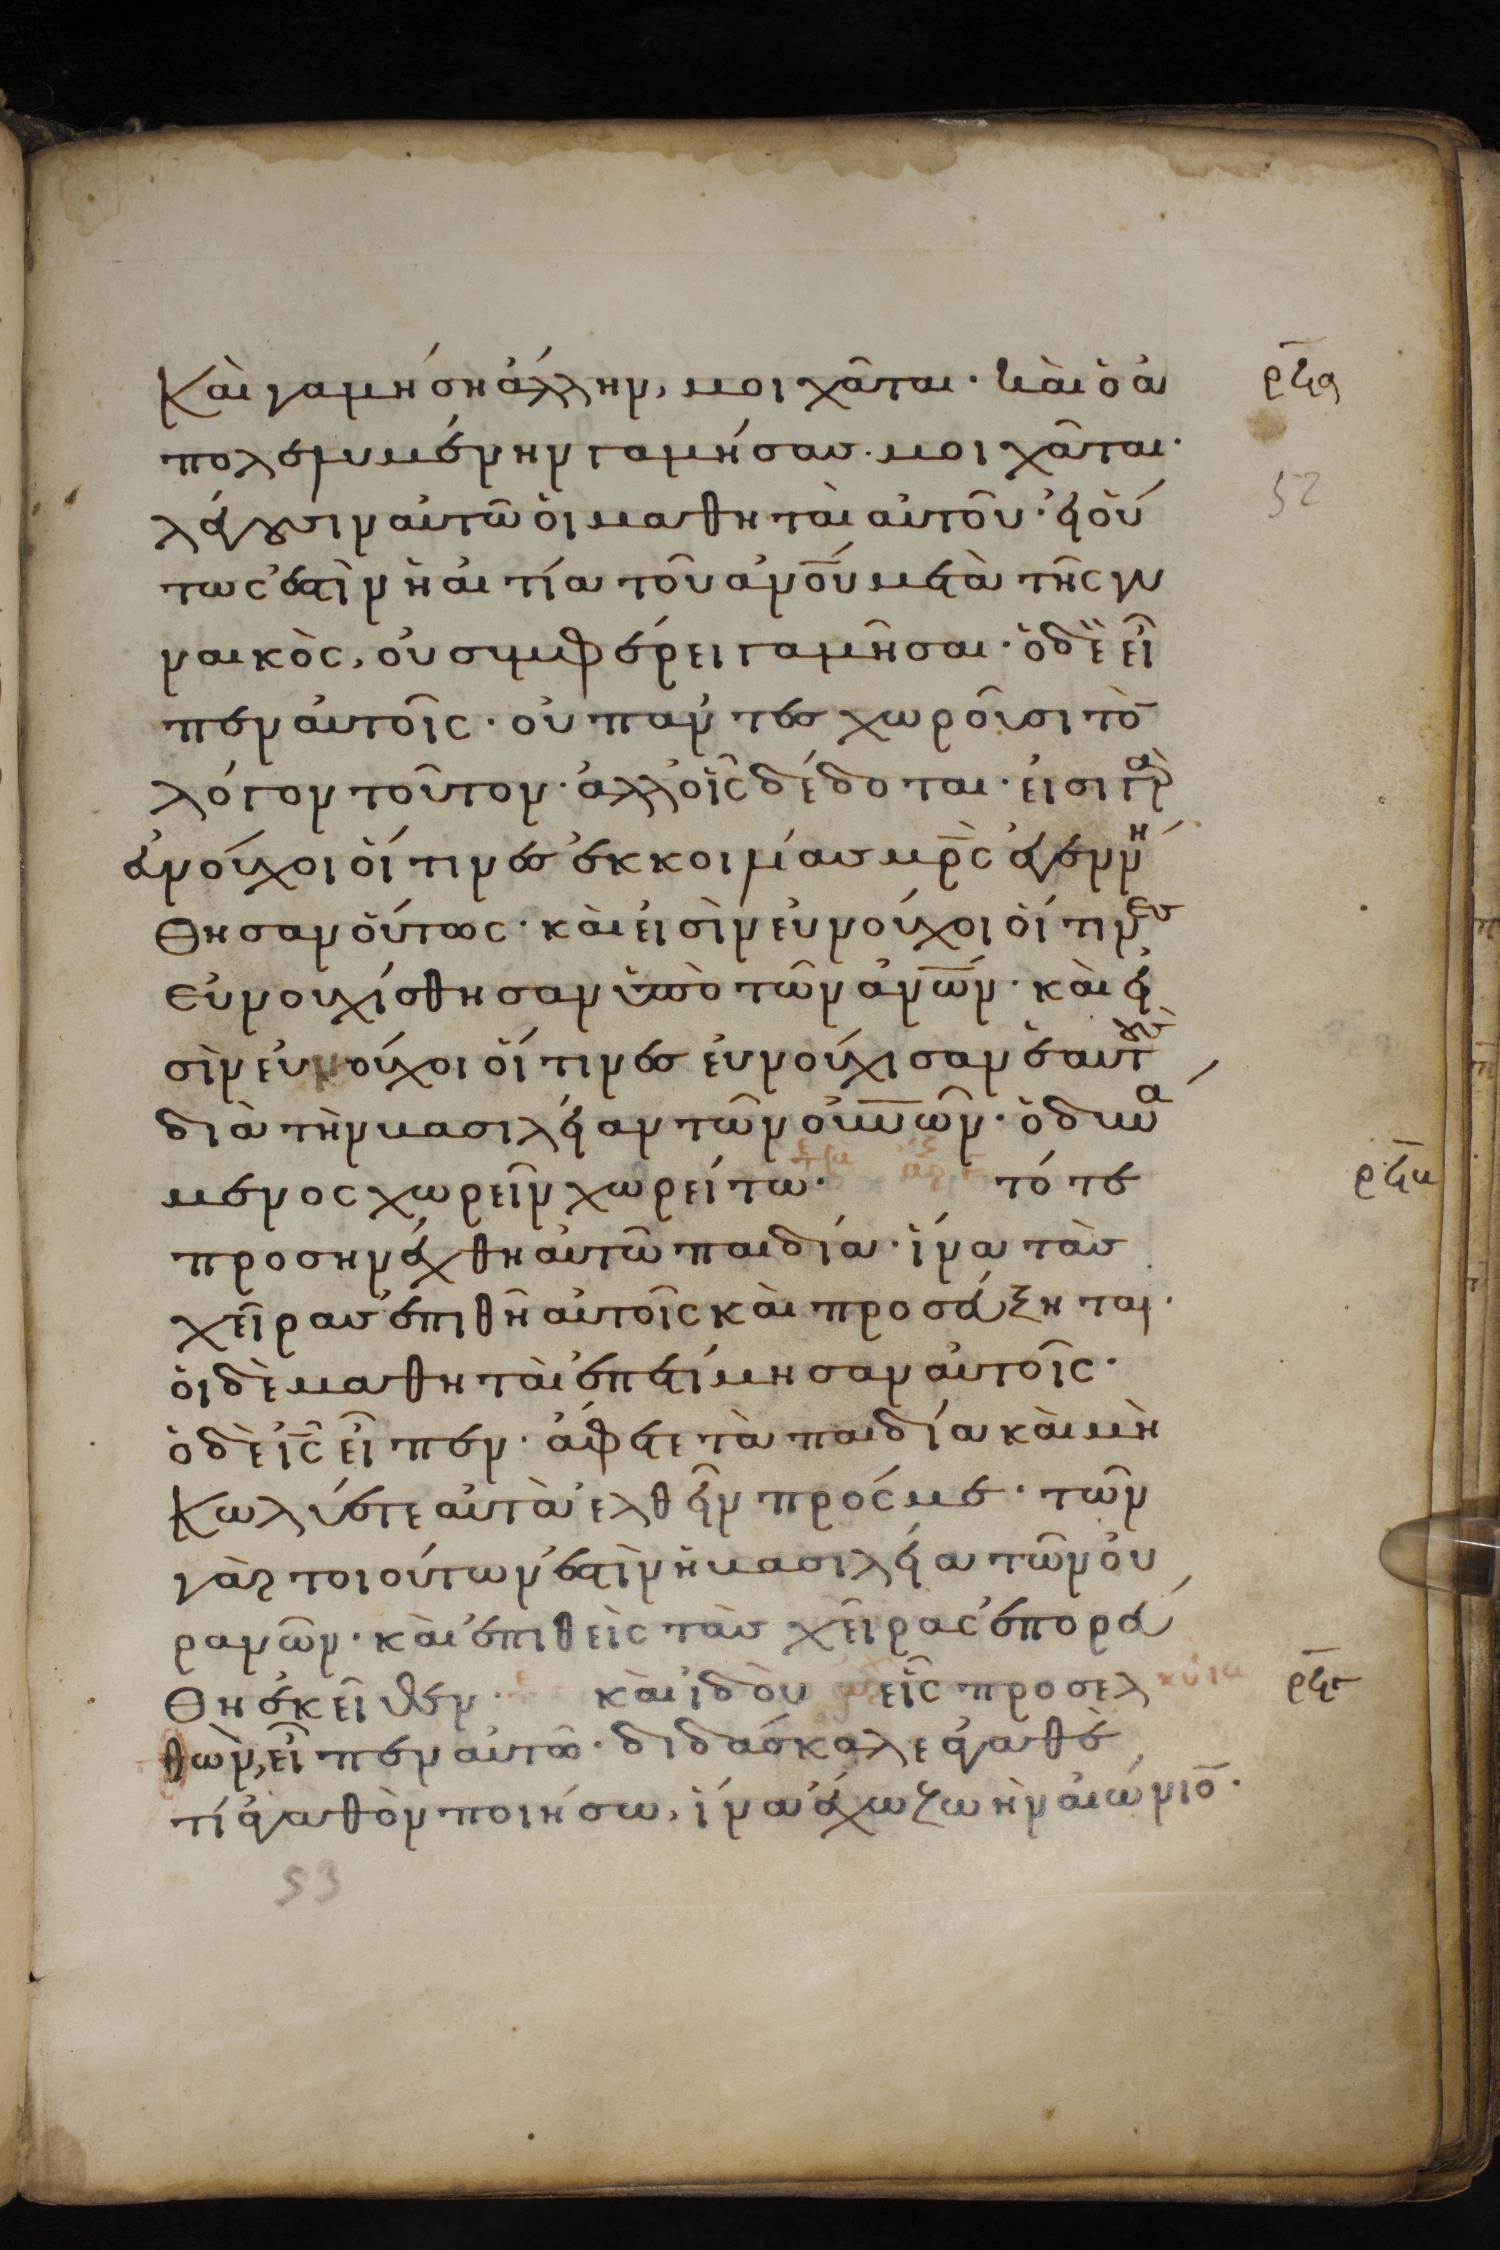 καὶ γαμήση ἄλλην, μοιχᾶται· καὶ ὁ ἀ ρϟα
πολελυμένην γαμήσας. μοιχᾶται· 52
λέγουσιν αὐτῶ οἱ μαθηταὶ αὐτοῦ· εἰ οὕ
τως ἐστὶν ἡ αἰτία τοῦ ἀνοῦ μετὰ τῆς γυ
ναικὸς, οὐ συμφέρει γαμῆσαι· ὁ δὲ εἶ
πεν αὐτοῖς· οὐ πάντες χωροῦσι τὸ
λόγον τοῦτον· ἀλλ οἷς δέδοται· εἰσὶ γὰρ
εὐνοῦχοι οἵτινες ἐκ κοιλίας μρὸς ἐγεννή
θησαν οὕτως· καὶ εἰσὶν εὐνοῦχοι οἵτινες
εὐνουχίσθησαν ὑπὸ τῶν ἀνων· καὶ εἰ
σὶν εὐνοῦχοι οἵτινες εὐνούχισαν ἑαυτοὺς
διὰ τὴν βασιλείαν τῶν οὐνων· ὁ δυνά
μενος χωρεῖν χωρείτω· τότε ρϟβ
προσηνέχθη αὐτῶ παιδία· ἵνα τὰς
χεῖρας ἐπιθῆ αὐτοῖς καὶ προσεύξηται·
οἱ δὲ μαθηταὶ ἐπετίμησαν αὐτοῖς·
ὁ δὲ ις εἶπεν· ἄφετε τὰ παιδία καὶ μὴ
κωλύετε αὐτὰ ἐλθεῖν πρός με· τῶν
γὰρ τοιούτων ἐστὶν ἡ βασιλεία τῶν οὐ
ρανῶν· καὶ ἐπιθεὶς τὰς χεῖρας ἐπορεύ
θη ἐκεῖθεν· καὶ ἰδοὺ εἷς προσελ ρϟγ
θὼν, εἶπεν αὐτῶ· διδάσκαλε ἀγαθὲ
τί ἀγαθὸν ποιήσω, ἵνα ἔχω ζωὴν αἰώνιο·
53